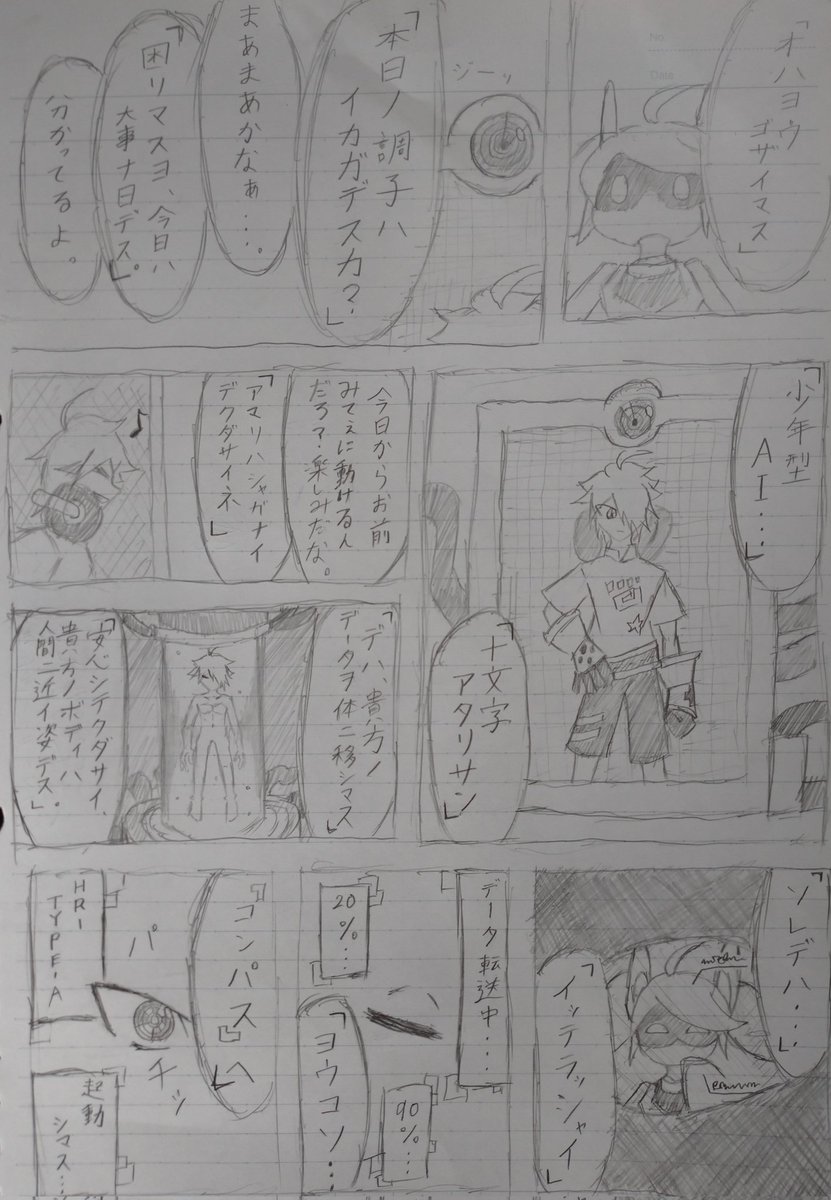 No.
Date
「オハヨウ
ゴザイマス」
ジーッ
「本日ノ調子ハ
イカガデスカ?」
まあまあかなぁ…。
「困リマスヨ、今日ハ
大事ナ日デス。」
分かってるよ。
「少年型
AI…」
「十文字
アタリサン」
今日からお前
みてぇに動けるん
だろ?楽しみだな。
「アマリハシャガナイ
デクダサイネ」
♪
「デハ、貴方ノ
データヲ体ニ移シマス」
「安心シテクダサイ、
貴方ノボディハ
人間ニ近イ姿デス」。
「ソレデハ…」
「イッテラッシャイ」
データ転送中….
20%…
90%…
「ヨウコソ…
コンパスヘ」
パ
チッ
HRI
TYPE-A
起動
シマス…